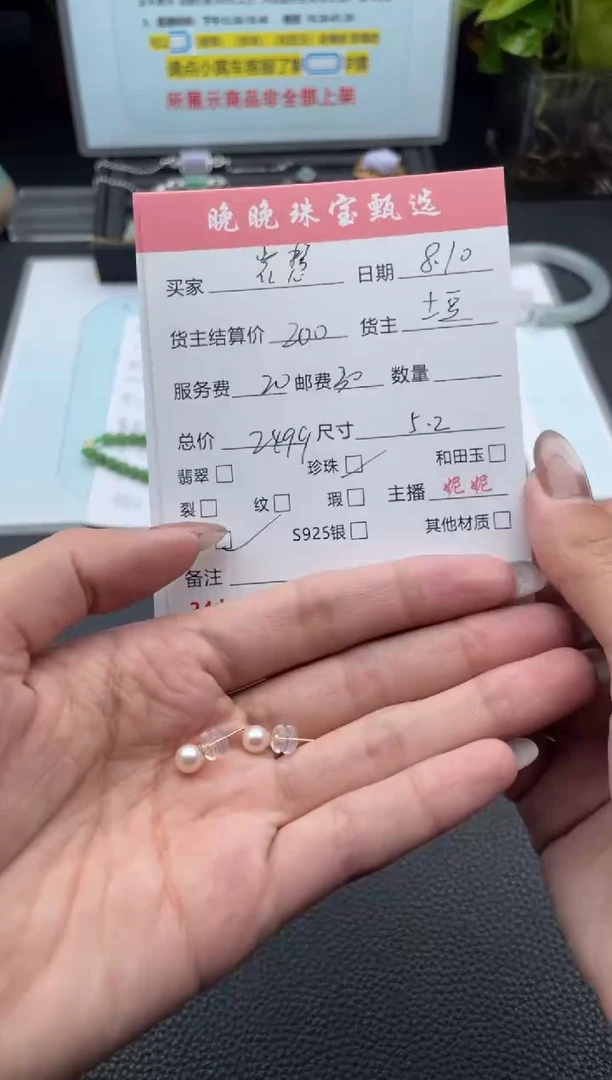 请点小黄车客服了解
所展示商品非全部上架
晚晚珠宝甄选
买家 日期 8.10
货主结算价 200 货主 土豆
服务费 20 邮费 30 数量
总价 2499 尺寸 5.2
翡翠 珍珠 和田玉
裂 纹 瑕 主播 妮妮
S925银 其他材质
备注